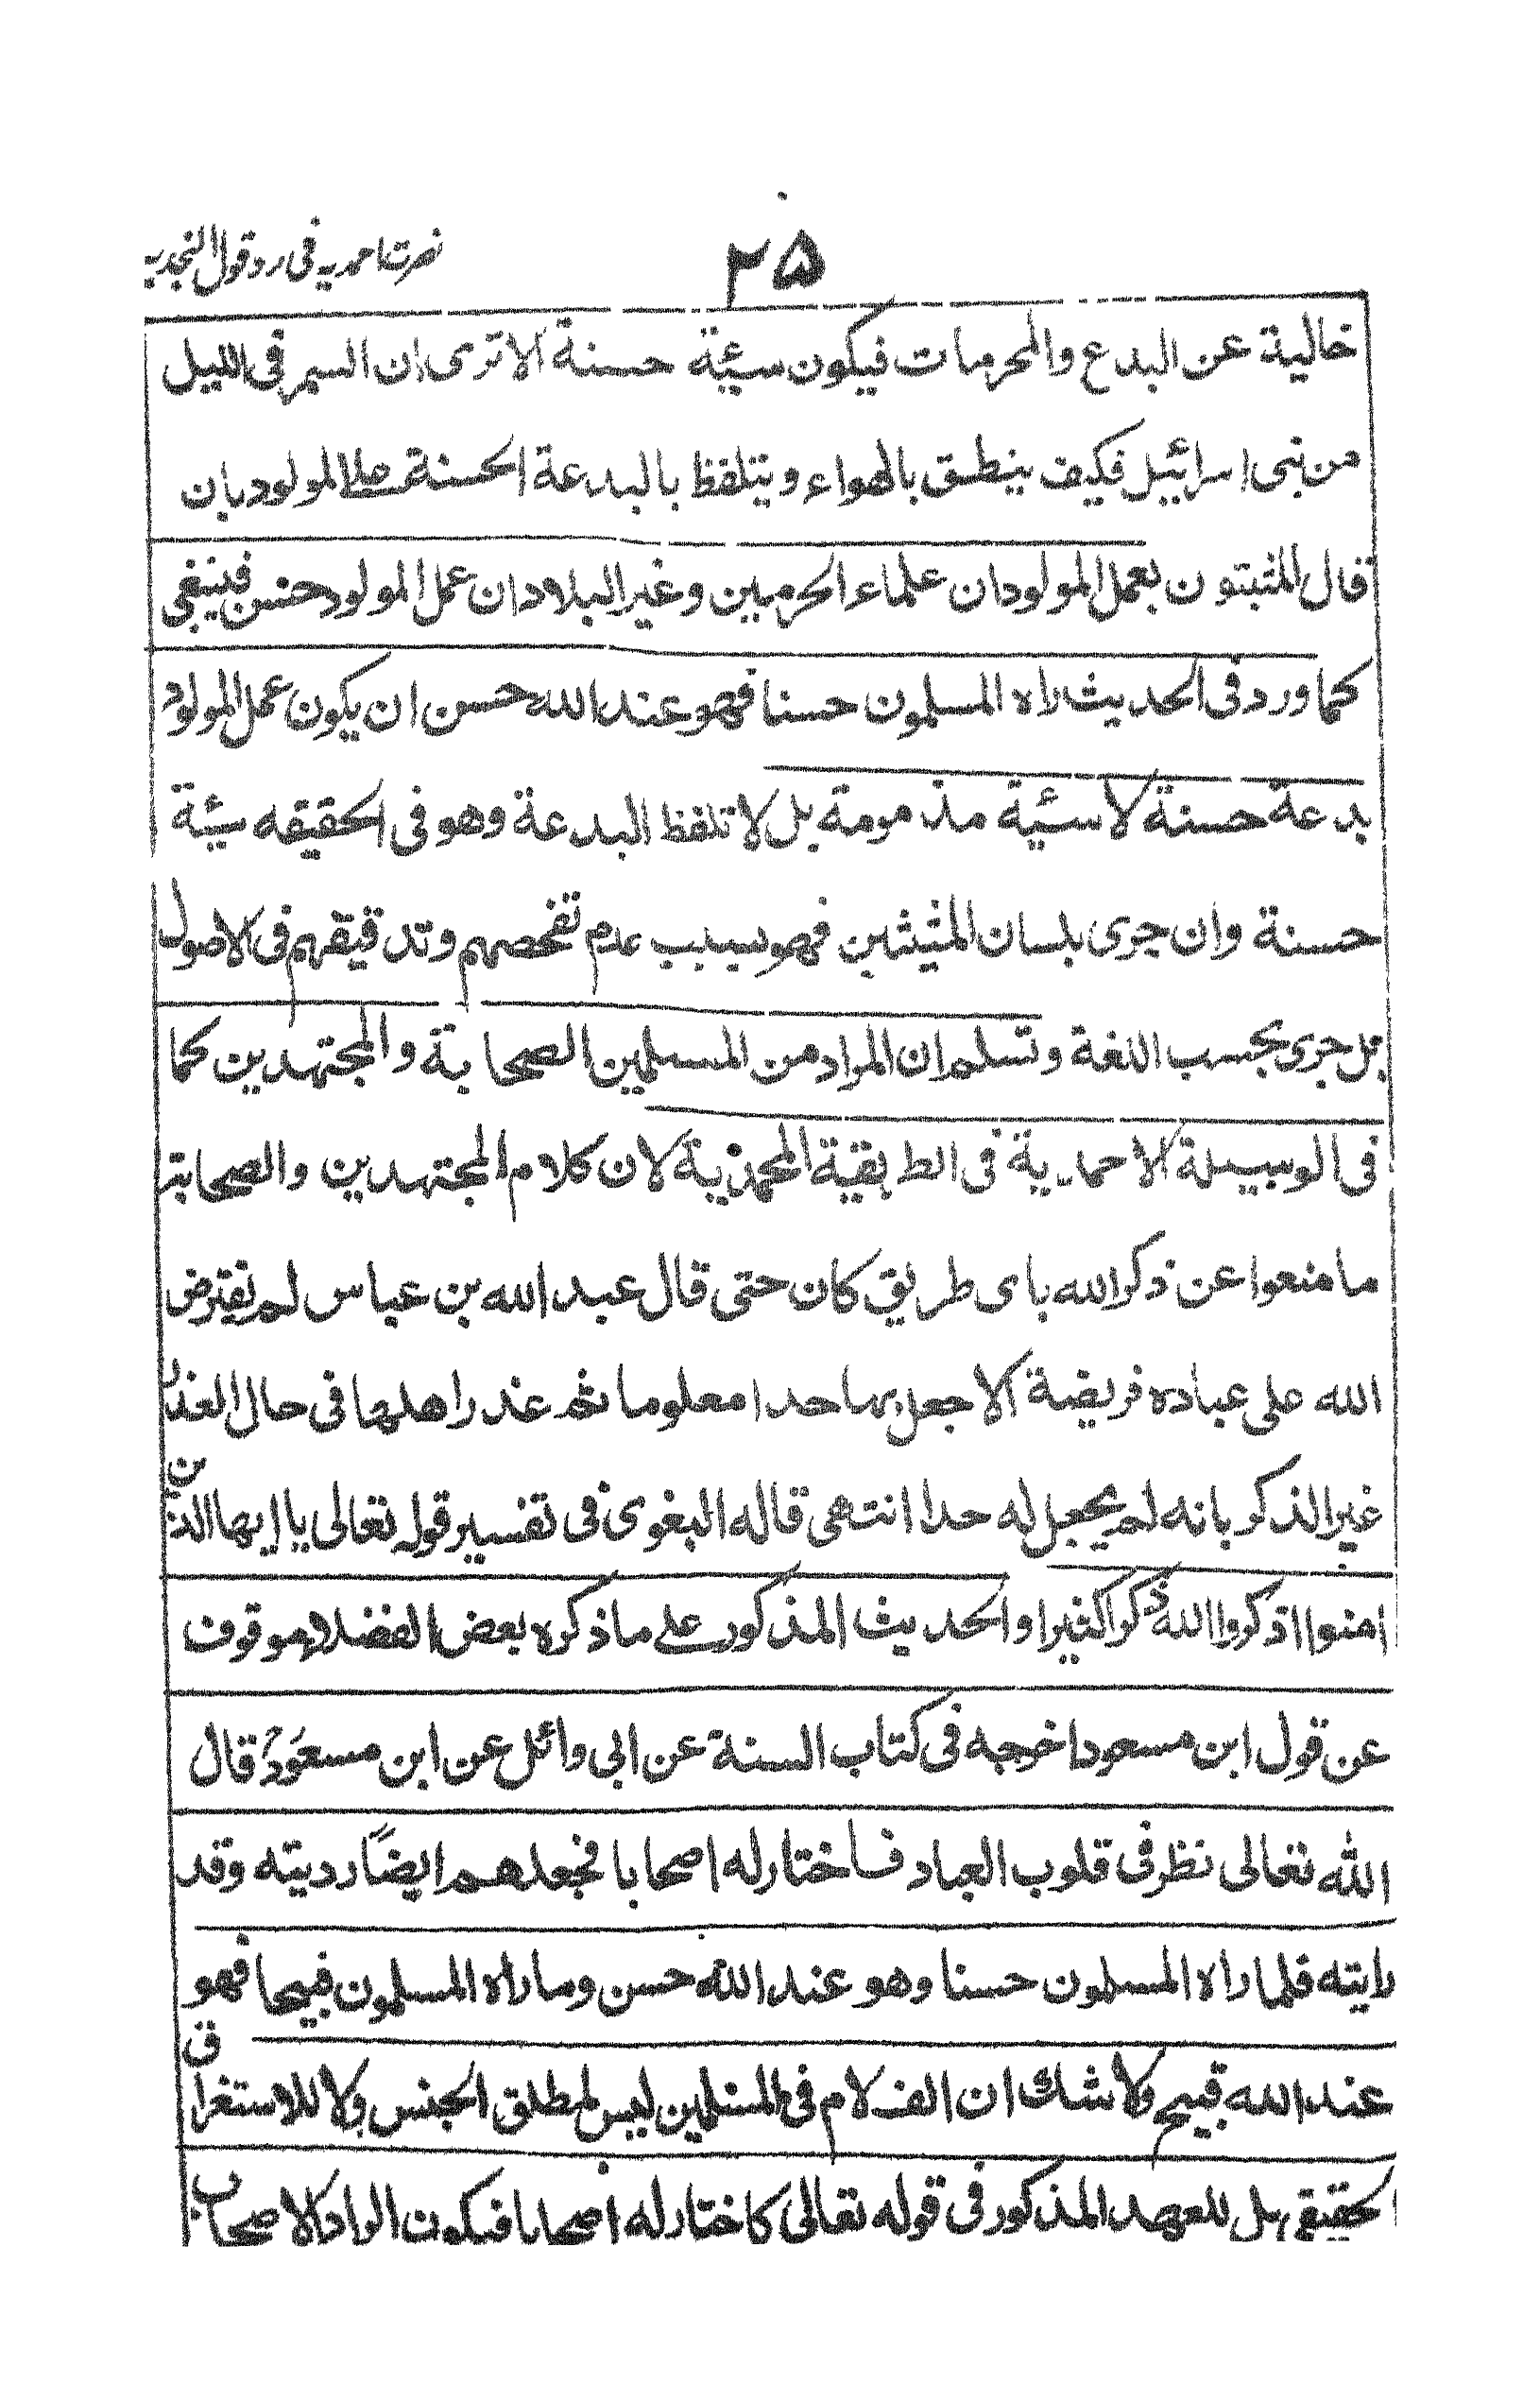 ۲۵
نصرت احمدیه فی رد قول النجدیه
خالية عن البدع والمحرمات فيكون سيئة حسنة الا ترى ان السير فى الليل
من نبى اسرائيل فكيف ينطق بالهواء ويتلفظ بالبدعة الحسنة على المولود بان
قال المثبتون بعمل المولود ان علماء الحرمين وغير البلاد ان عمل المولود حسن فينبغى
كما ورد فى الحديث راه المسلمون حسنا فهو عند الله حسن ان يكون عمل المولود
بدعة حسنة لا سيئة مذمومة بل لا تلفظ البدعة وهو فى الحقيقه سيئة
حسنة وان جرى بلسان المثبتين فهو سبب عدم تفحصهم وتدقيقهم فى الاصول
بل جرى بحسب اللغة وتسلم ان المراد من المسلمين الصحابة والمجتهدين كما
فى الوسيلة الاحمدية فى الطريقة المحمدية لان كلام المجتهدين والصحابة
ما منعوا عن ذكر الله باى طريق كان حتى قال عبد الله بن عباس لم يفترض
الله على عباده فريضة الا جعل بها حدا معلوما ثم عذر اهلها فى حال العذر
غير الذكر بانه لم يجعل له حدا انتهى قاله البغوى فى تفسير قوله تعالى يا ايها الذين
امنوا اذكروا الله ذكرا كثيرا والحديث المذكور على ما ذكره بعض الفضلاء موقوف
عن قول ابن مسعود اخرجه فى كتاب السنة عن ابى وائل عن ابن مسعود قال
الله تعالى نظر فى قلوب العباد فاختار له اصحابا فجعلهم ايضًا رديته وقد
رايته فلما راه المسلمون حسنا وهو عند الله حسن وما راه المسلمون قبيحا فهو
عند الله قبيح ولا شك ان الف لام فى المسلمين ليس لمطلق الجنس ولا للاستغراق
الحقيقى بل للعهد المذكور فى قوله تعالى كاختار له اصحابا فيكون المراد الاصحاب